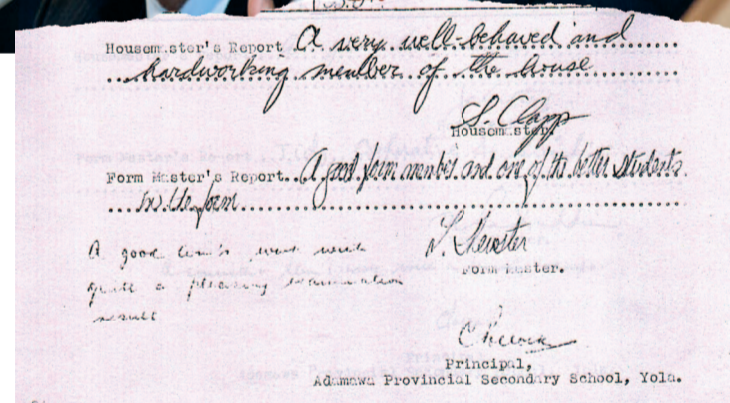 Housem ster's Report A very well-behaved and
hardworking member of the house
S. Clapp
Housem ster.
Form Master's Report... A good form member and one of the better students
in the form
A good term's work with
quite a pleasing examination
result
Form Master.
Principal,
Adamawa Provincial Secondary School, Yola.